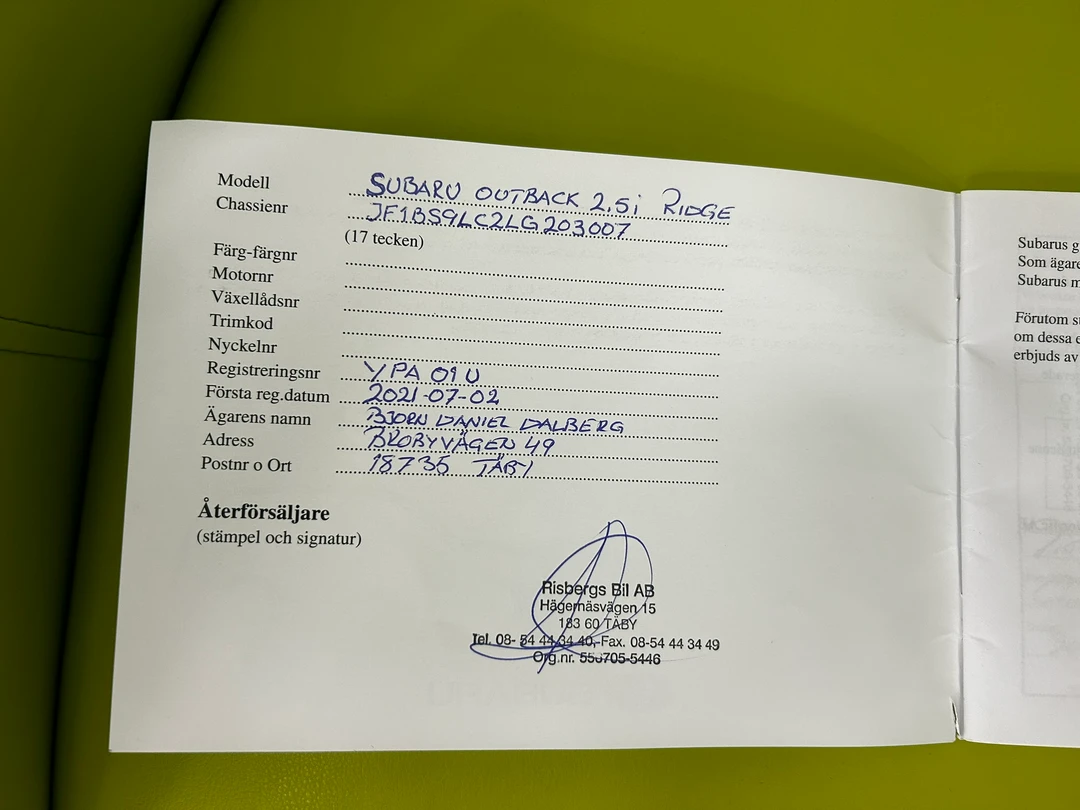 Modell SUBARU OUTBACK 2.5i RIDGE
Chassienr JF1BS9LC2LG203007
(17 tecken)
Färg-färgnr
Motornr
Växellådsnr
Trimkod
Nyckelnr
Registreringsnr YPA 01U
Första reg.datum 2021-07-02
Ägarens namn BJORN DANIEL DALBERG
Adress BROBYVÄGEN 49
Postnr o Ort 18735 TÄBY
Återförsäljare
(stämpel och signatur)
Risbergs Bil AB
Hägernäsvägen 15
183 60 TÄBY
Tel. 08- 54 44 34 40, Fax. 08-54 44 34 49
Org.nr. 556705-5446
Subarus g
Som ägare
Subarus m
Förutom s
om dessa e
erbjuds av